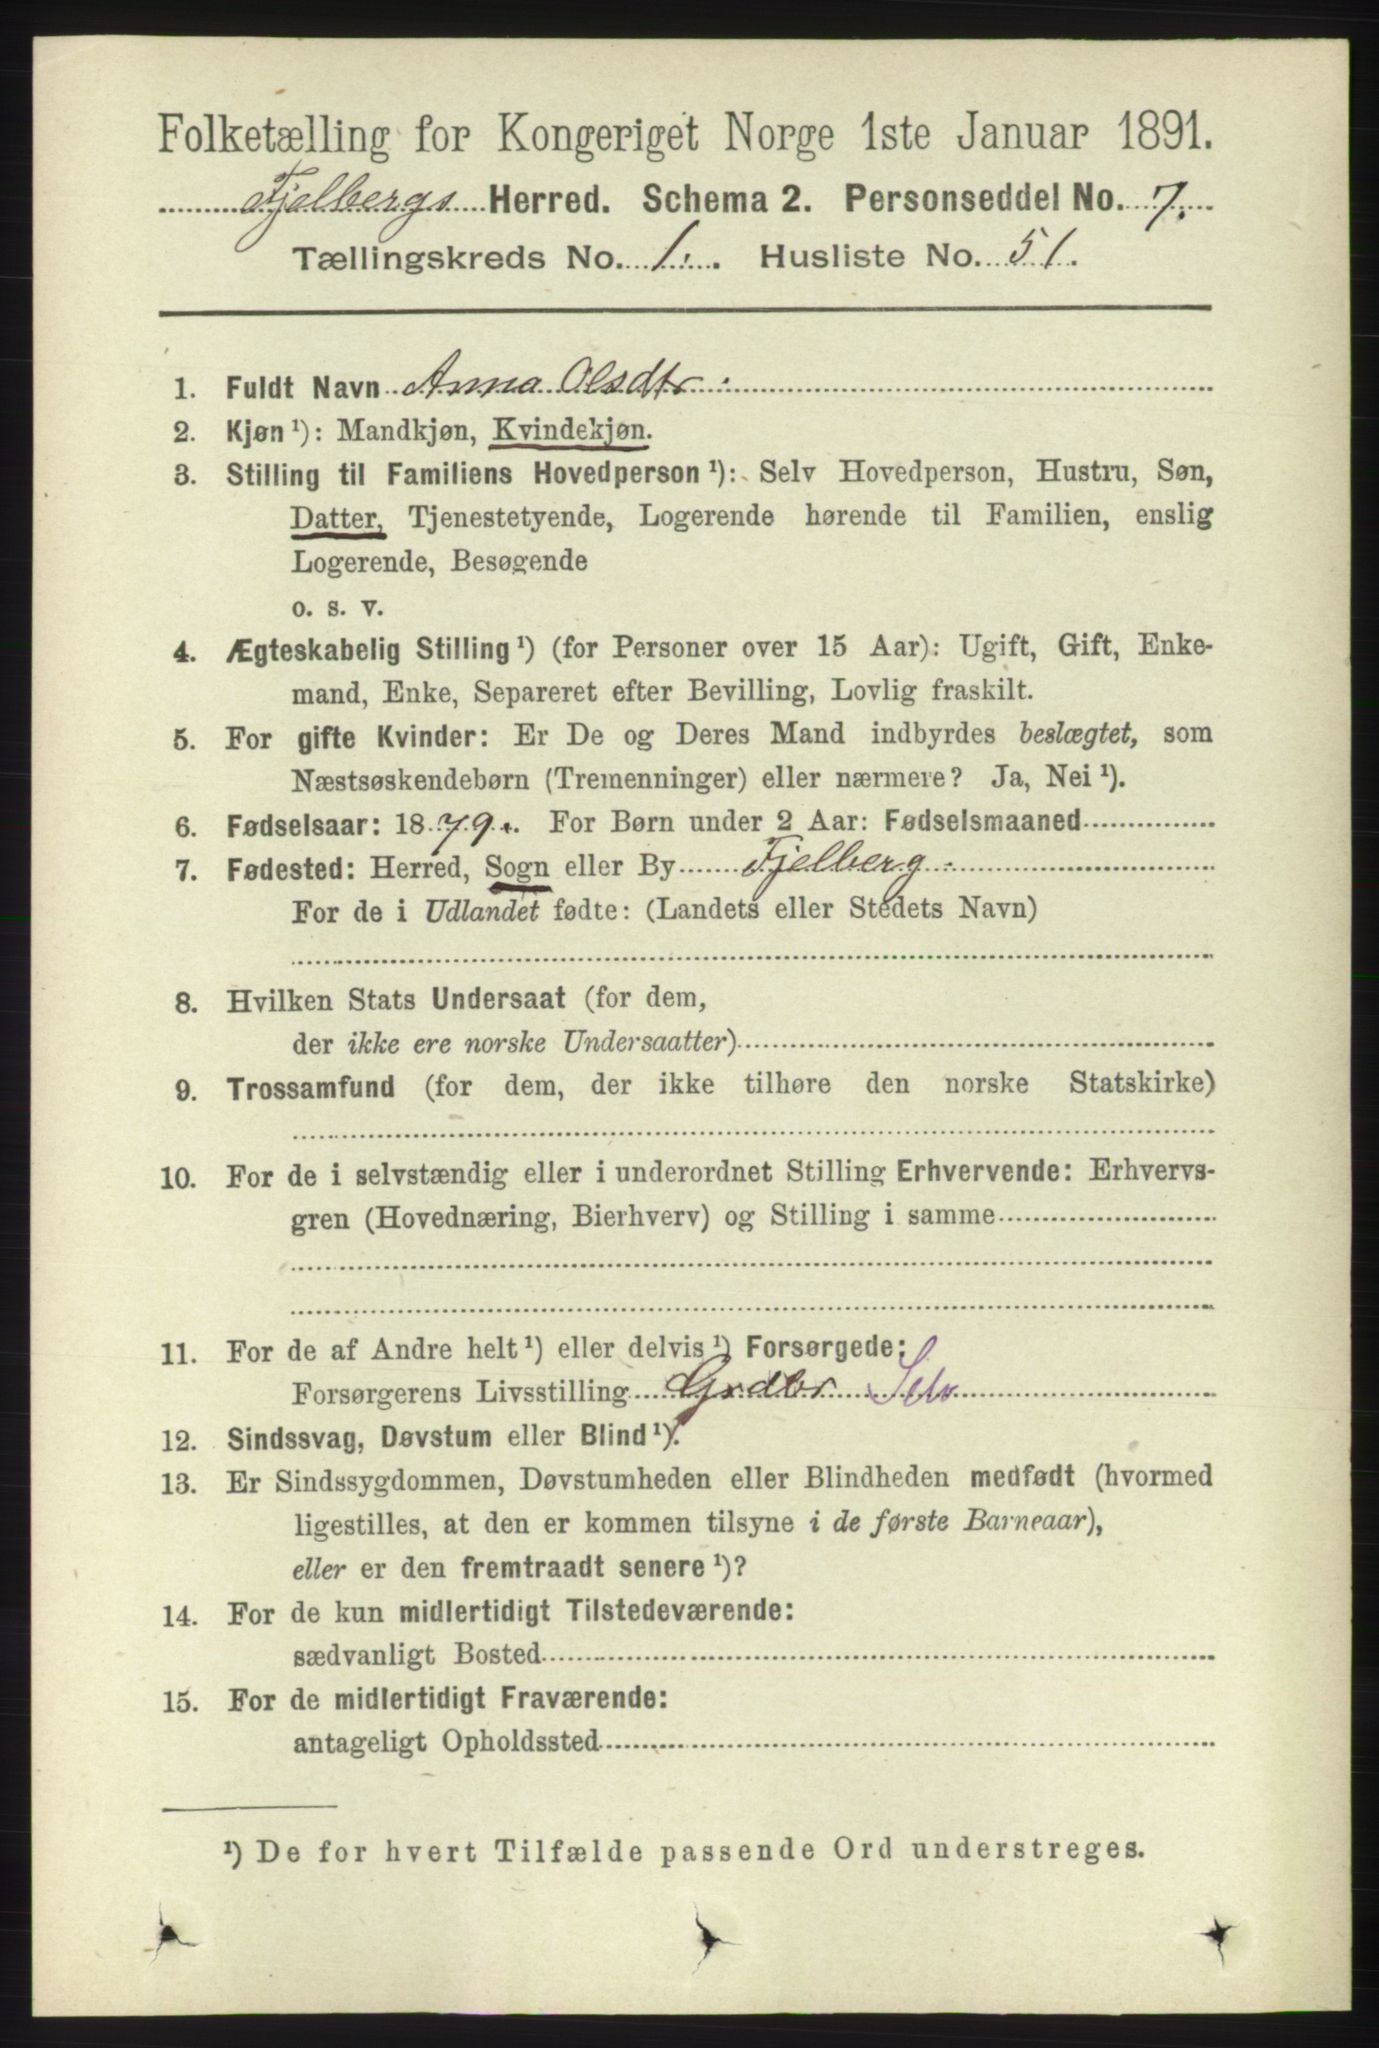 Folketælling for Kongeriget Norge 1ste Januar 1891.
Fjelbergs Herred. Schema 2. Personseddel No. 7.
Tællingskreds No. 1. Husliste No. 51.
1. Fuldt Navn Anna Olsdtr
2. Kjøn ¹): Mandkjøn, Kvindekjøn.
3. Stilling til Familiens Hovedperson ¹): Selv Hovedperson, Hustru, Søn,
Datter, Tjenestetyende, Logerende hørende til Familien, enslig
Logerende, Besøgende
o. s. v.
4. Ægteskabelig Stilling ¹) (for Personer over 15 Aar): Ugift, Gift, Enke-
mand, Enke, Separeret efter Bevilling, Lovlig fraskilt.
5. For gifte Kvinder: Er De og Deres Mand indbyrdes beslægtet, som
Næstsøskendebørn (Tremenninger) eller nærmere? Ja, Nei ¹).
6. Fødselsaar: 1879. For Børn under 2 Aar: Fødselsmaaned
7. Fødested: Herred, Sogn eller By Fjelberg
For de i Udlandet fødte: (Landets eller Stedets Navn)
8. Hvilken Stats Undersaat (for dem,
der ikke ere norske Undersaatter)
9. Trossamfund (for dem, der ikke tilhøre den norske Statskirke)
10. For de i selvstændig eller i underordnet Stilling Erhvervende: Erhvervs-
gren (Hovednæring, Bierhverv) og Stilling i samme
11. For de af Andre helt ¹) eller delvis ¹) Forsørgede:
Forsørgerens Livsstilling Grdbr Selv
12. Sindssvag, Døvstum eller Blind ¹).
13. Er Sindssygdommen, Døvstumheden eller Blindheden medfødt (hvormed
ligestilles, at den er kommen tilsyne i de første Barneaar),
eller er den fremtraadt senere ¹)?
14. For de kun midlertidigt Tilstedeværende:
sædvanligt Bosted
15. For de midlertidigt Fraværende:
antageligt Opholdssted
¹) De for hvert Tilfælde passende Ord understreges.